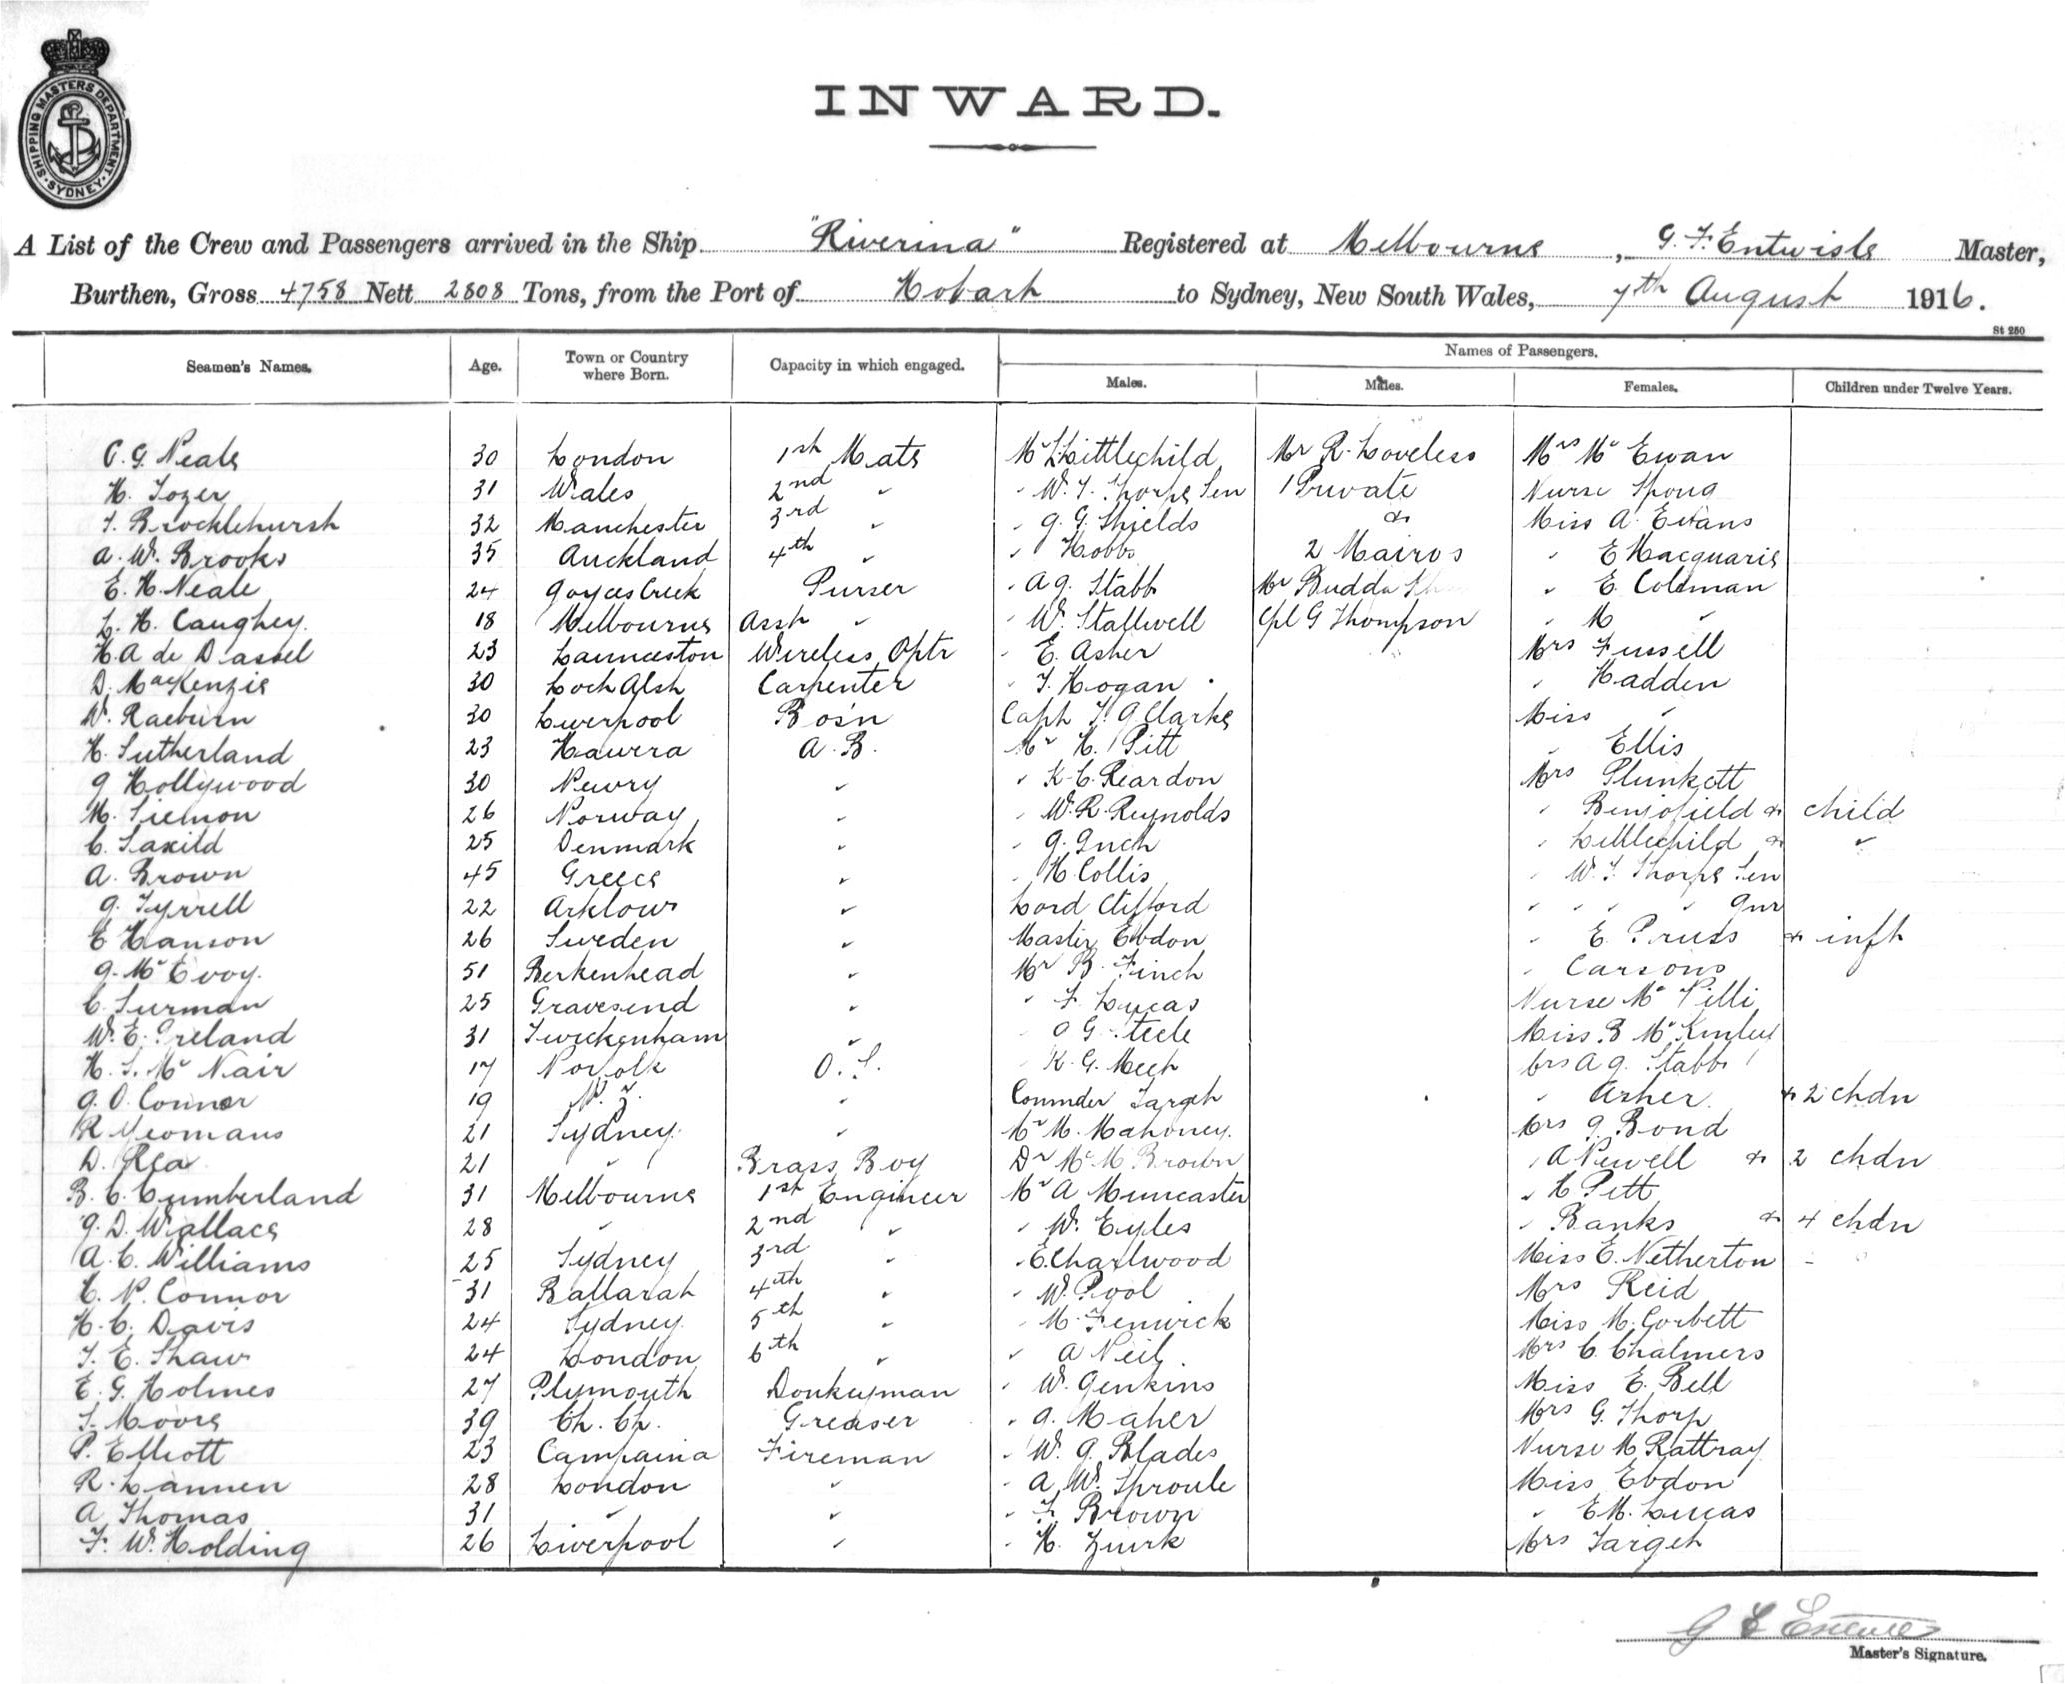 SHIPPING MASTERS DEPARTMENT
SYDNEY
INWARD.
A List of the Crew and Passengers arrived in the Ship "Riverina" Registered at Melbourne, G. F. Entwisle Master,
Burthen, Gross 4758 Nett 2808 Tons, from the Port of Hobart to Sydney, New South Wales, 7th August 1916.
St 250
Seamen's Names. Age. Town or Country where Born. Capacity in which engaged. Names of Passengers.
Males. Males. Females. Children under Twelve Years.
C. G. Neale 30 London 1st Mate Mr Littlechild Mr R. Loveless Mrs Mc Ewan
H. Tozer 31 Wales 2nd " " W. T. Thorpe Sen 1 Private Nurse Spong
T. Brocklehurst 32 Manchester 3rd " " G. G. Shields & Miss A. Evans
A. W. Brooks 35 Auckland 4th " " Hobbs 2 Mairos " E Macquarie
E. H. Neale 24 Joyces Creek Purser " A J. Stabb Mr Budda " E. Coleman
L. H. Caughey. 18 Melbourne Asst " " W. Stallwell Cpl G Thompson " M "
H. A de Dassel 23 Launceston Wireless Optr " E. Asher Mrs Fussell
D. MacKenzie 30 Loch Alsh Carpenter " T. Hogan " Hadden
W. Raeburn 30 Liverpool Bos'n Capt T. G. Clarke Miss "
H. Sutherland 23 Hawera A. B. Mr H. Pitt " Ellis
J Hollywood 30 Newry " " K. C. Reardon Mrs Plunkett
M. Siemon 26 Norway " " W. R. Reynolds " Benjofield & child
C. Saxild 25 Denmark " " J. Inch " Littlechild & "
A. Brown 45 Greece " " H. Collis " W. T. Thorpe Sen
J. Tyrrell 22 Arklow " Lord Clifford " " " " Jnr
E Hanson 26 Sweden " Master Ebdon " E. Pruss & inft
J. Mc Evoy. 51 Berkenhead " Mr B. Finch " Carsons
C. Surman 25 Gravesend " " F. Lucas Nurse Mc Pilli
W. E. Ireland 31 Twickenham " " O G Steele Miss B Mc Kinley
H. S. Mc Nair 17 Norfolk O. S. " K. G. Meek Mrs A J. Stabb
J. O. Connor 19 N. Z. " Commder Target " Asher & 2 chdn
R Yeomans 21 Sydney " Mr M. Mahoney. Mrs J. Bond
D. Rea 21 " Brass Boy Dr Mc M Brown " A Newell & 2 chdn
B. C. Cumberland 31 Melbourne 1st Engineer Mr A Muncaster " H Pitt
J. D. Wallace 28 " 2nd " " W. Eyles " Banks & 4 chdn
A. C. Williams 25 Sydney 3rd " " E. Charlwood Miss E. Netherton
C. N. Connor 31 Ballarat 4th " " W. Pool Mrs Reid
H. C. Davis 24 Sydney 5th " " M. Fenwick Miss M. Corbett
T. E. Shaw 24 London 6th " " A Neil Mrs C. Chalmers
E. G. Holmes 27 Plymouth Donkeyman " W. Jenkins Miss E. Bell
S. Moore 39 Ch. Ch. Greaser " J. Maher Mrs G. Thorp
P. Elliott 23 Campaina Fireman " W. J. Blades Nurse M Rattray
R. Lannen 28 London " " A W. Sproule Miss Ebdon
A Thomas 31 " " " F. Brown " E M. Lucas
F. W. Holding 26 Liverpool " " H. Zmrk Mrs Target
Master's Signature.